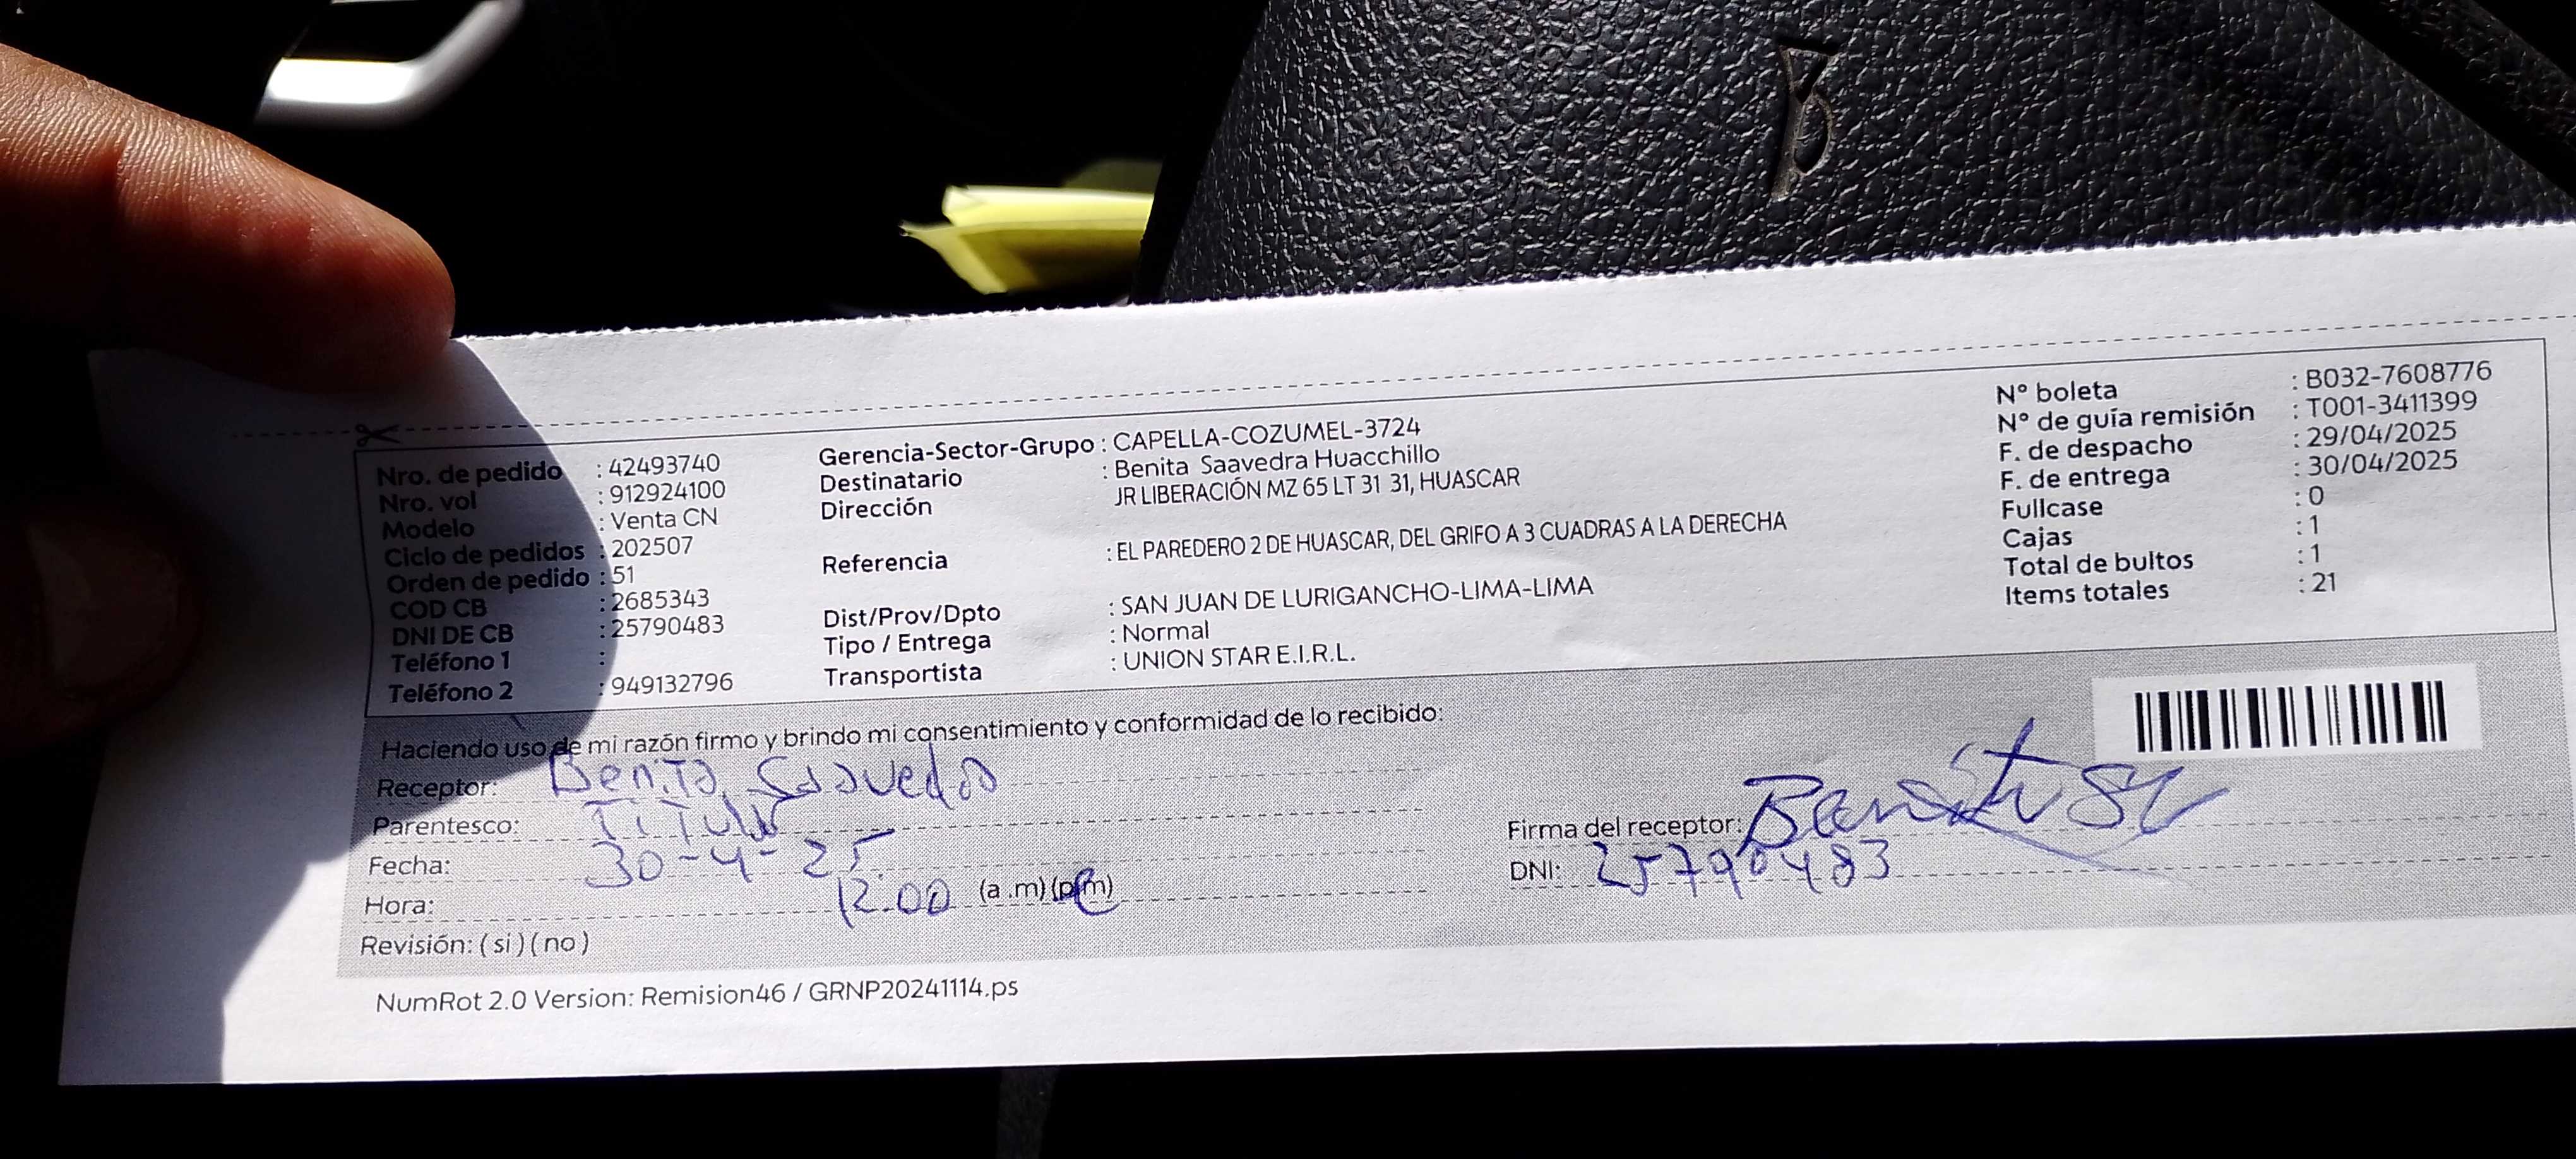 Nro. de pedido : 42493740
Nro. vol : 912924100
Modelo : Venta CN
Ciclo de pedidos : 202507
Orden de pedido : 51
COD CB : 2685343
DNI DE CB : 25790483
Teléfono 1 :
Teléfono 2 : 949132796
Gerencia-Sector-Grupo : CAPELLA-COZUMEL-3724
Destinatario : Benita Saavedra Huacchillo
Dirección JR LIBERACIÓN MZ 65 LT 31 31, HUASCAR
Referencia : EL PAREDERO 2 DE HUASCAR, DEL GRIFO A 3 CUADRAS A LA DERECHA
Dist/Prov/Dpto : SAN JUAN DE LURIGANCHO-LIMA-LIMA
Tipo / Entrega : Normal
Transportista : UNION STAR E.I.R.L.
N° boleta : B032-7608776
N° de guía remisión : T001-3411399
F. de despacho : 29/04/2025
F. de entrega : 30/04/2025
Fullcase : 0
Cajas : 1
Total de bultos : 1
Items totales : 21
Haciendo uso de mi razón firmo y brindo mi consentimiento y conformidad de lo recibido:
Receptor: Benita Saavedra
Parentesco: Titular
Fecha: 30-4-25
Hora: 12.00 (a.m) (p.m)
Revisión: (si) (no)
Firma del receptor:
DNI: 25790483
NumRot 2.0 Version: Remision46 / GRNP20241114.ps